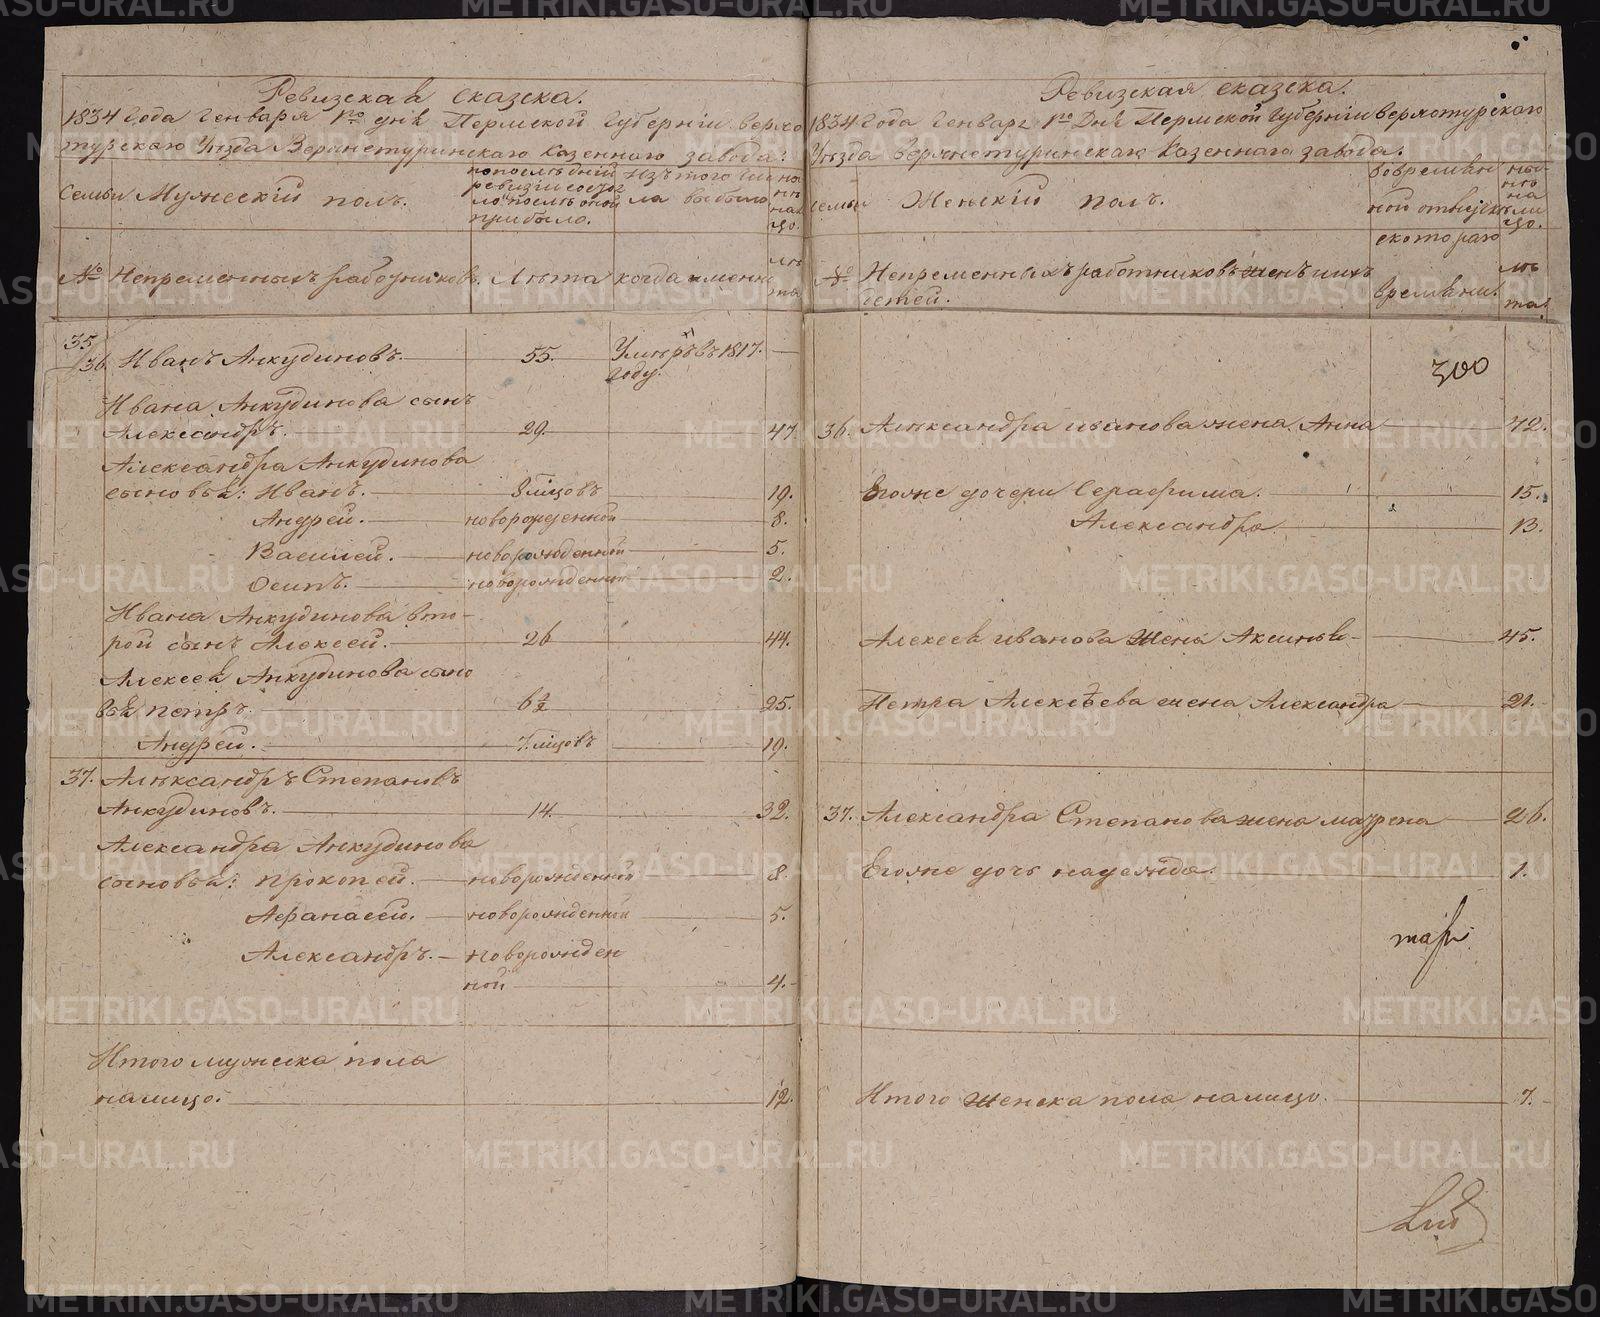 Ревизская сказска.
1834 Года Генваря 1го дня Пермской Губерніи верхо
турскаго Уѣзда Верхнетуринскаго Казеннаго завода:
семьи Мужескій полъ.
попослѣдній
ревизіи состоя
ло и послѣ оной
прибыло.
Изъ того чис
ла выбыло
№ Непременныхъ работниковъ.
Лѣта
когда именно
лѣ
та
35/36. Иванъ Анкудиновъ. 55. Умѣръ въ 1817.
году.
Ивана Анкудинова сынъ
Александръ. 29. 47.
Александра Анкудинова
сыновья: Иванъ. 8 мѣцовъ 19.
Андрей. новорожденной 8.
Василей. новорожденной 5.
Осипъ. новорожденной 2.
Ивана Анкудинова вто-
рой сынъ Алексей. 26 44.
Алексея Анкудинова сыно
вья петръ. 6 1/2 25.
Андрей. 7 мѣцовъ 19.
37. Александръ Степановъ
Анкудиновъ. 14. 32.
Александра Анкудинова
сыновья: прокопей. новорожденной 8.
Афанасей. новорожденной 5.
Александръ. новорожден
ной 4.
Итого мужеска пола
налицо. 12.
Ревизская сказска.
1834 Года Генваря 1го Дня Пермской Губерніи верхотурскаго
Уѣзда верхнетуринскаго Казеннаго завода.
семьи Женскій полъ.
вовремян
ной отлучкѣ
скотораго
времѣни.
ны-
нѣ
на
ли
цо.
лѣ
та.
№ Непременныхъ работниковъ женъ ихъ
детей.
300
36. Александра иванова жена Анна 42.
Егоже дочери Серафима. 15.
Александра 13.
Алексея иванова жена Аксинья 45.
Петра Алексѣева жена Александра 21.
37. Александра Степанова жена маврена 26.
Егоже дочь надежда. 1.
Итого женска пола налицо. 7.
METRIKI.GASO-URAL.RU